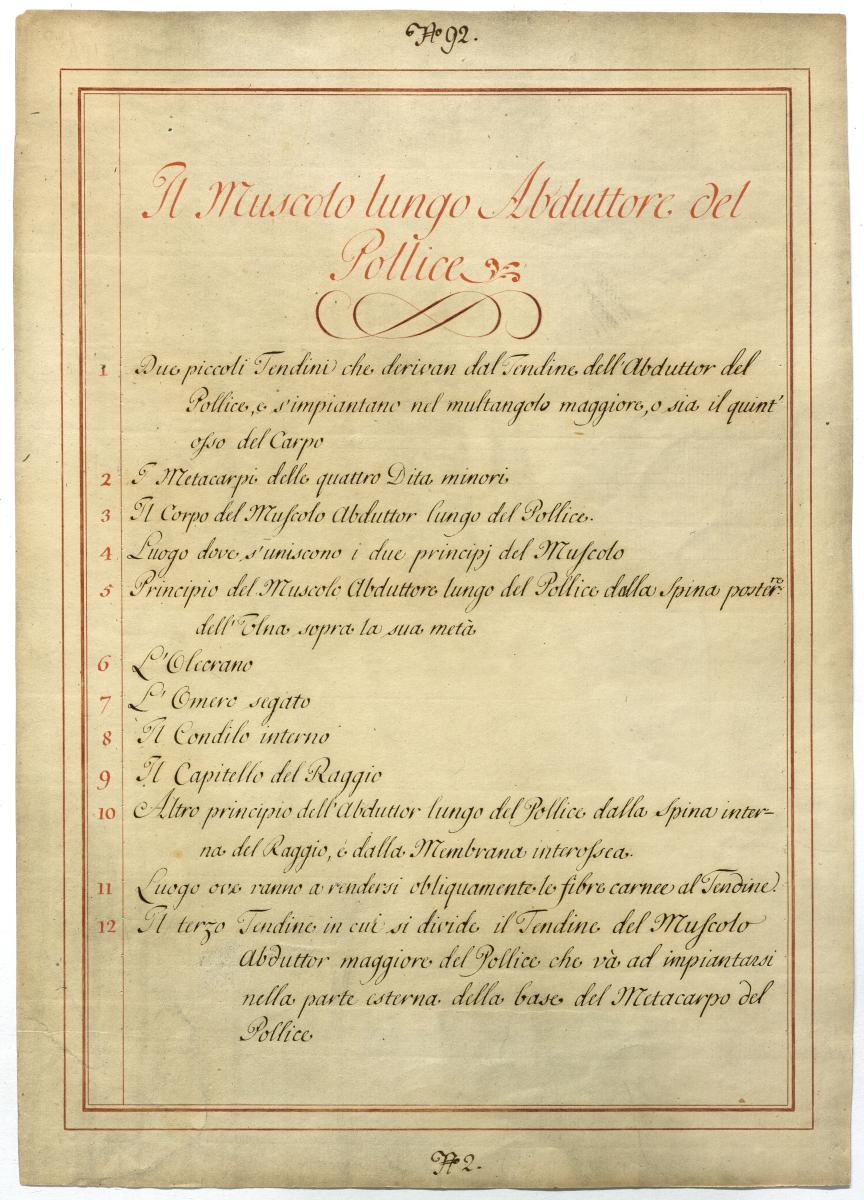 No 92.
Il Muscolo lungo Abduttore del
Pollice
1 Due piccoli Tendini che derivan dal Tendine dell'Abduttor del
Pollice, e s'impiantano nel multangolo maggiore, o sia il quint'
osso del Carpo
2 I Metacarpi delle quattro Dita minori
3 Il Corpo del Muscolo Abduttor lungo del Pollice.
4 Luogo dove s'uniscono i due principj del Muscolo
5 Principio del Muscolo Abduttore lungo del Pollice dalla Spina poster.re
dell'Ulna sopra la sua metà
6 L'Olecrano
7 L'Omero segato
8 Il Condilo interno
9 Il Capitello del Raggio
10 Altro principio dell'Abduttor lungo del Pollice dalla Spina inter-
na del Raggio, e dalla Membrana interossea.
11 Luogo ove vanno a rendersi obliquamente le fibre carnee al Tendine.
12 Il terzo Tendine in cui si divide il Tendine del Muscolo
Abduttor maggiore del Pollice che và ad impiantarsi
nella parte esterna della base del Metacarpo del
Pollice
No 2.